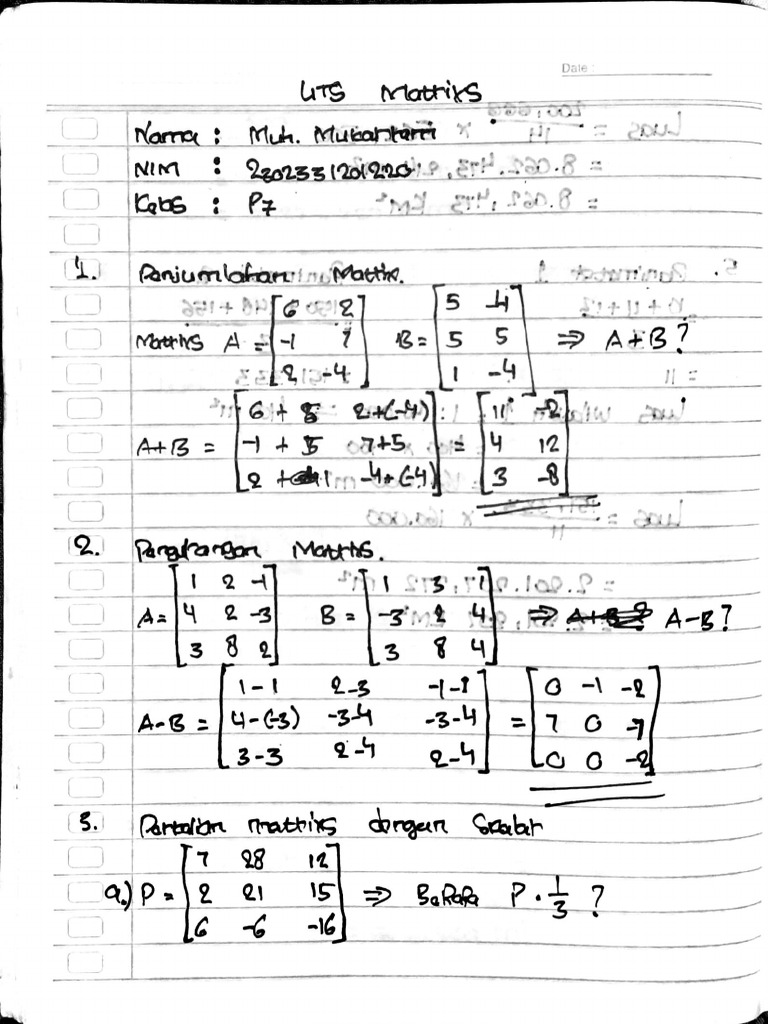 Date :
UTS Matriks
Nama : Muh. Mubarkam
NIM : 2302331201220
Kelas : P7
1. Penjumlahan Matrix.
Matriks A = [6 2; -1 7; 2 -4] B = [5 -4; 5 5; 1 -4] ⇒ A+B?
A+B = [6+5 2+(-4); -1+5 7+5; 2+1 -4+(-4)] = [11 -2; 4 12; 3 -8]
2. Pengurangan Matriks.
A = [1 2 -1; 4 2 -3; 3 8 2] B = [1 3 1; -3 2 4; 3 8 4] ⇒ A-B?
A-B = [1-1 2-3 -1-1; 4-(-3) -3-4 -3-4; 3-3 2-4 2-4] = [0 -1 -2; 7 0 -7; 0 0 -2]
3. Perkalian matriks dengan Skalar
a.) P = [7 28 12; 2 21 15; 6 -6 -16] ⇒ Berapa P . 1/3 ?